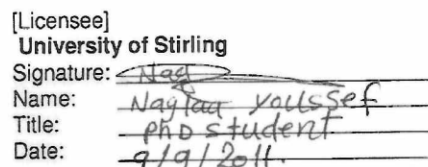 [Licensee]
University of Stirling
Signature: Nag
Name: Naglaa Youssef
Title: PhD student
Date: 9/9/2011